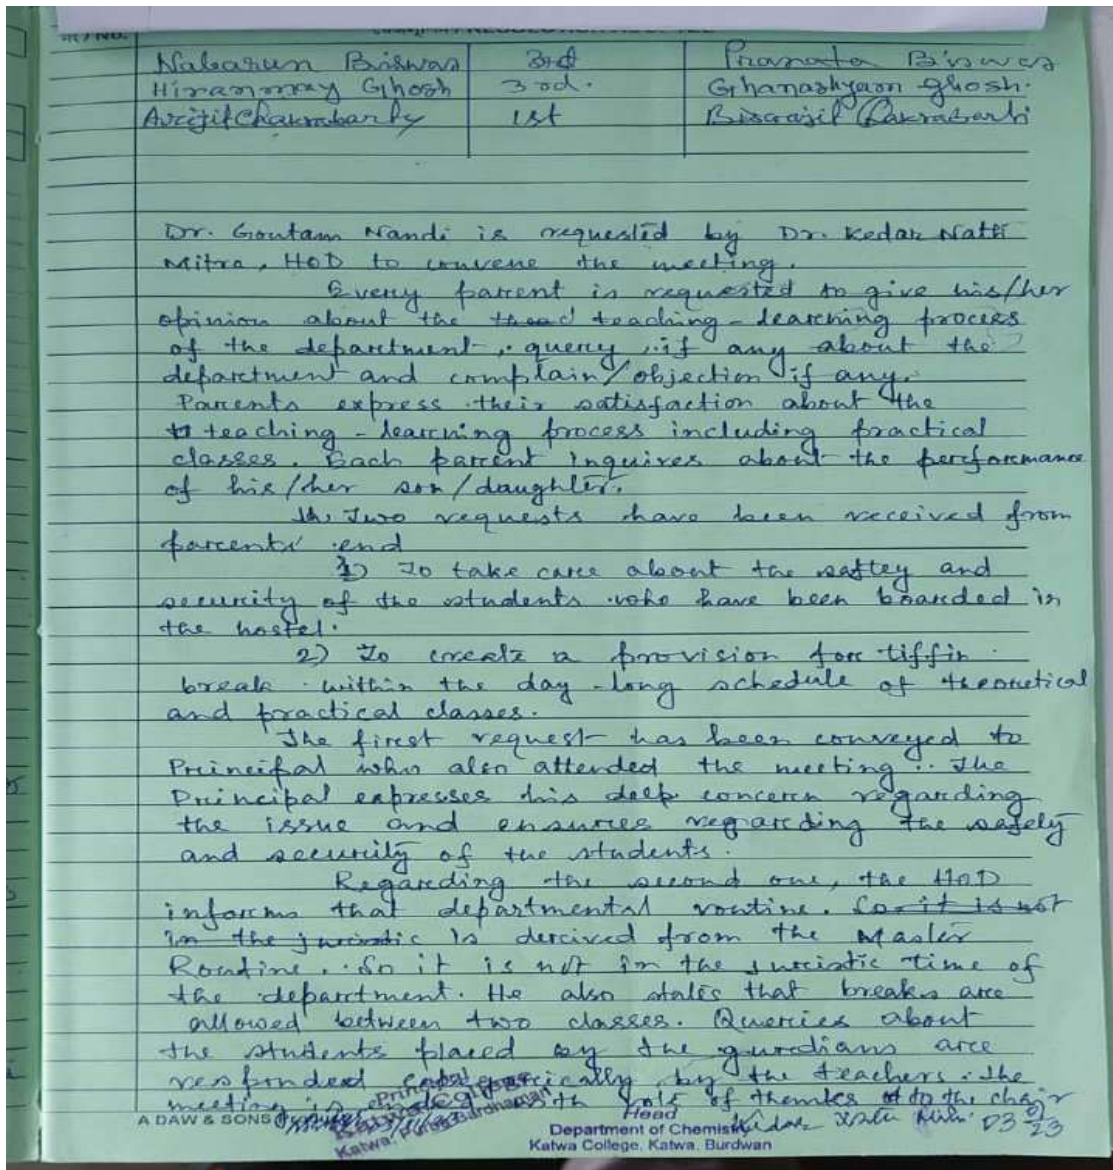 नं / NO.
Nabarun Biswas 3rd Pranata Biswas
Hiranmay Ghosh 3rd. Ghanashyam Ghosh.
Avijit Chakrabarty 1st Biswajit Chakrabarti
Dr. Goutam Nandi is requested by Dr. Kedar Nath
Mitra, HOD to convene the meeting.
Every parent is requested to give his/her
opinion about the teaching-learning process
of the department, query, if any about the
department and complain/objection if any.
Parents express their satisfaction about the
teaching-learning process including practical
classes. Each parent inquires about the performance
of his/her son/daughter.
Two requests have been received from
parents' end
1) To take care about the saftey and
security of the students who have been boarded in
the hostel.
2) To create a provision for tiffin
break within the day-long schedule of theoretical
and practical classes.
The first request has been conveyed to
Principal who also attended the meeting. The
Principal expresses his deep concern regarding
the issue and ensures regarding the safety
and security of the students.
Regarding the second one, the HOD
informs that departmental routine. So it is not
in the juristic is derived from the Master
Routine. So it is not in the juristic time of
the department. He also states that breaks are
allowed between two classes. Queries about
the students placed by the gurdians are
responded categorically by the teachers. The
meeting is with vote of thanks to the chair
A DAW & SONS
Principal
Katwa
Katwa, Purba Bardhaman
Head
Department of Chemistry
Katwa College, Katwa, Burdwan
Kedar Nath Mitra